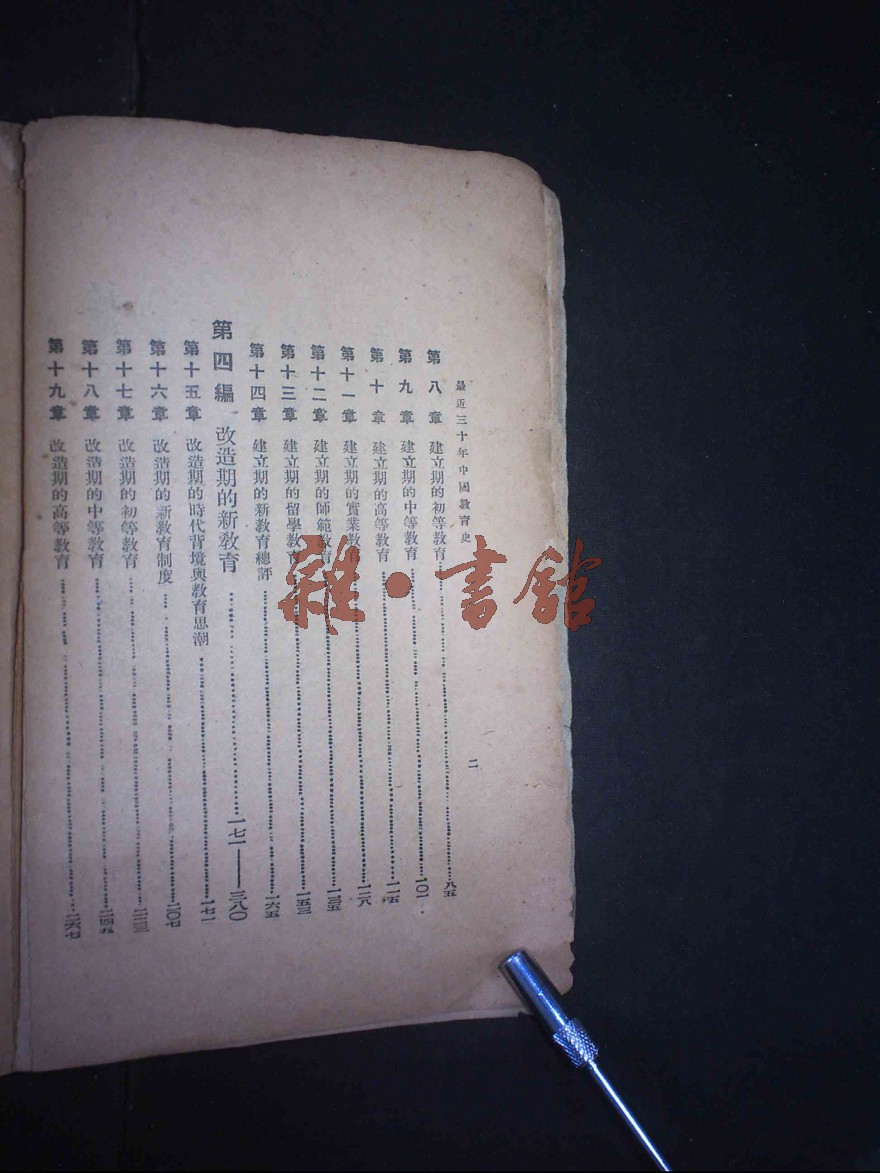 最近三十年中國教育史
二
第八章 建立期的初等教育 八五
第九章 建立期的中等教育 一〇一
第十章 建立期的高等教育 一一五
第十一章 建立期的實業教育 一二八
第十二章 建立期的師範教育 一三五
第十三章 建立期的留學教育 一五三
第十四章 建立期的新教育總評 一六五
第四編 改造期的新教育 一七一——三八〇
第十五章 改造期的時代背境與教育思潮 一七一
第十六章 改造期的新教育制度 二〇七
第十七章 改造期的初等教育
第十八章 改造期的中等教育 二四九
第十九章 改造期的高等教育 二六七
雜·書館